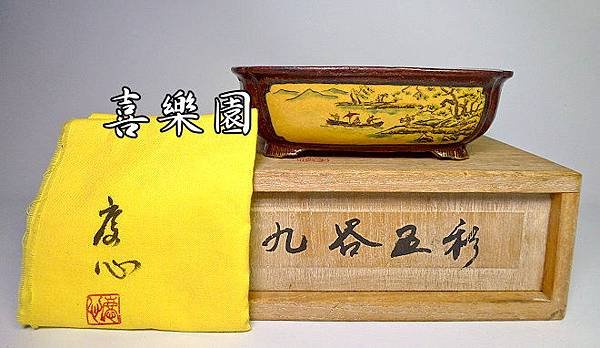 喜樂園
九谷五彩
心